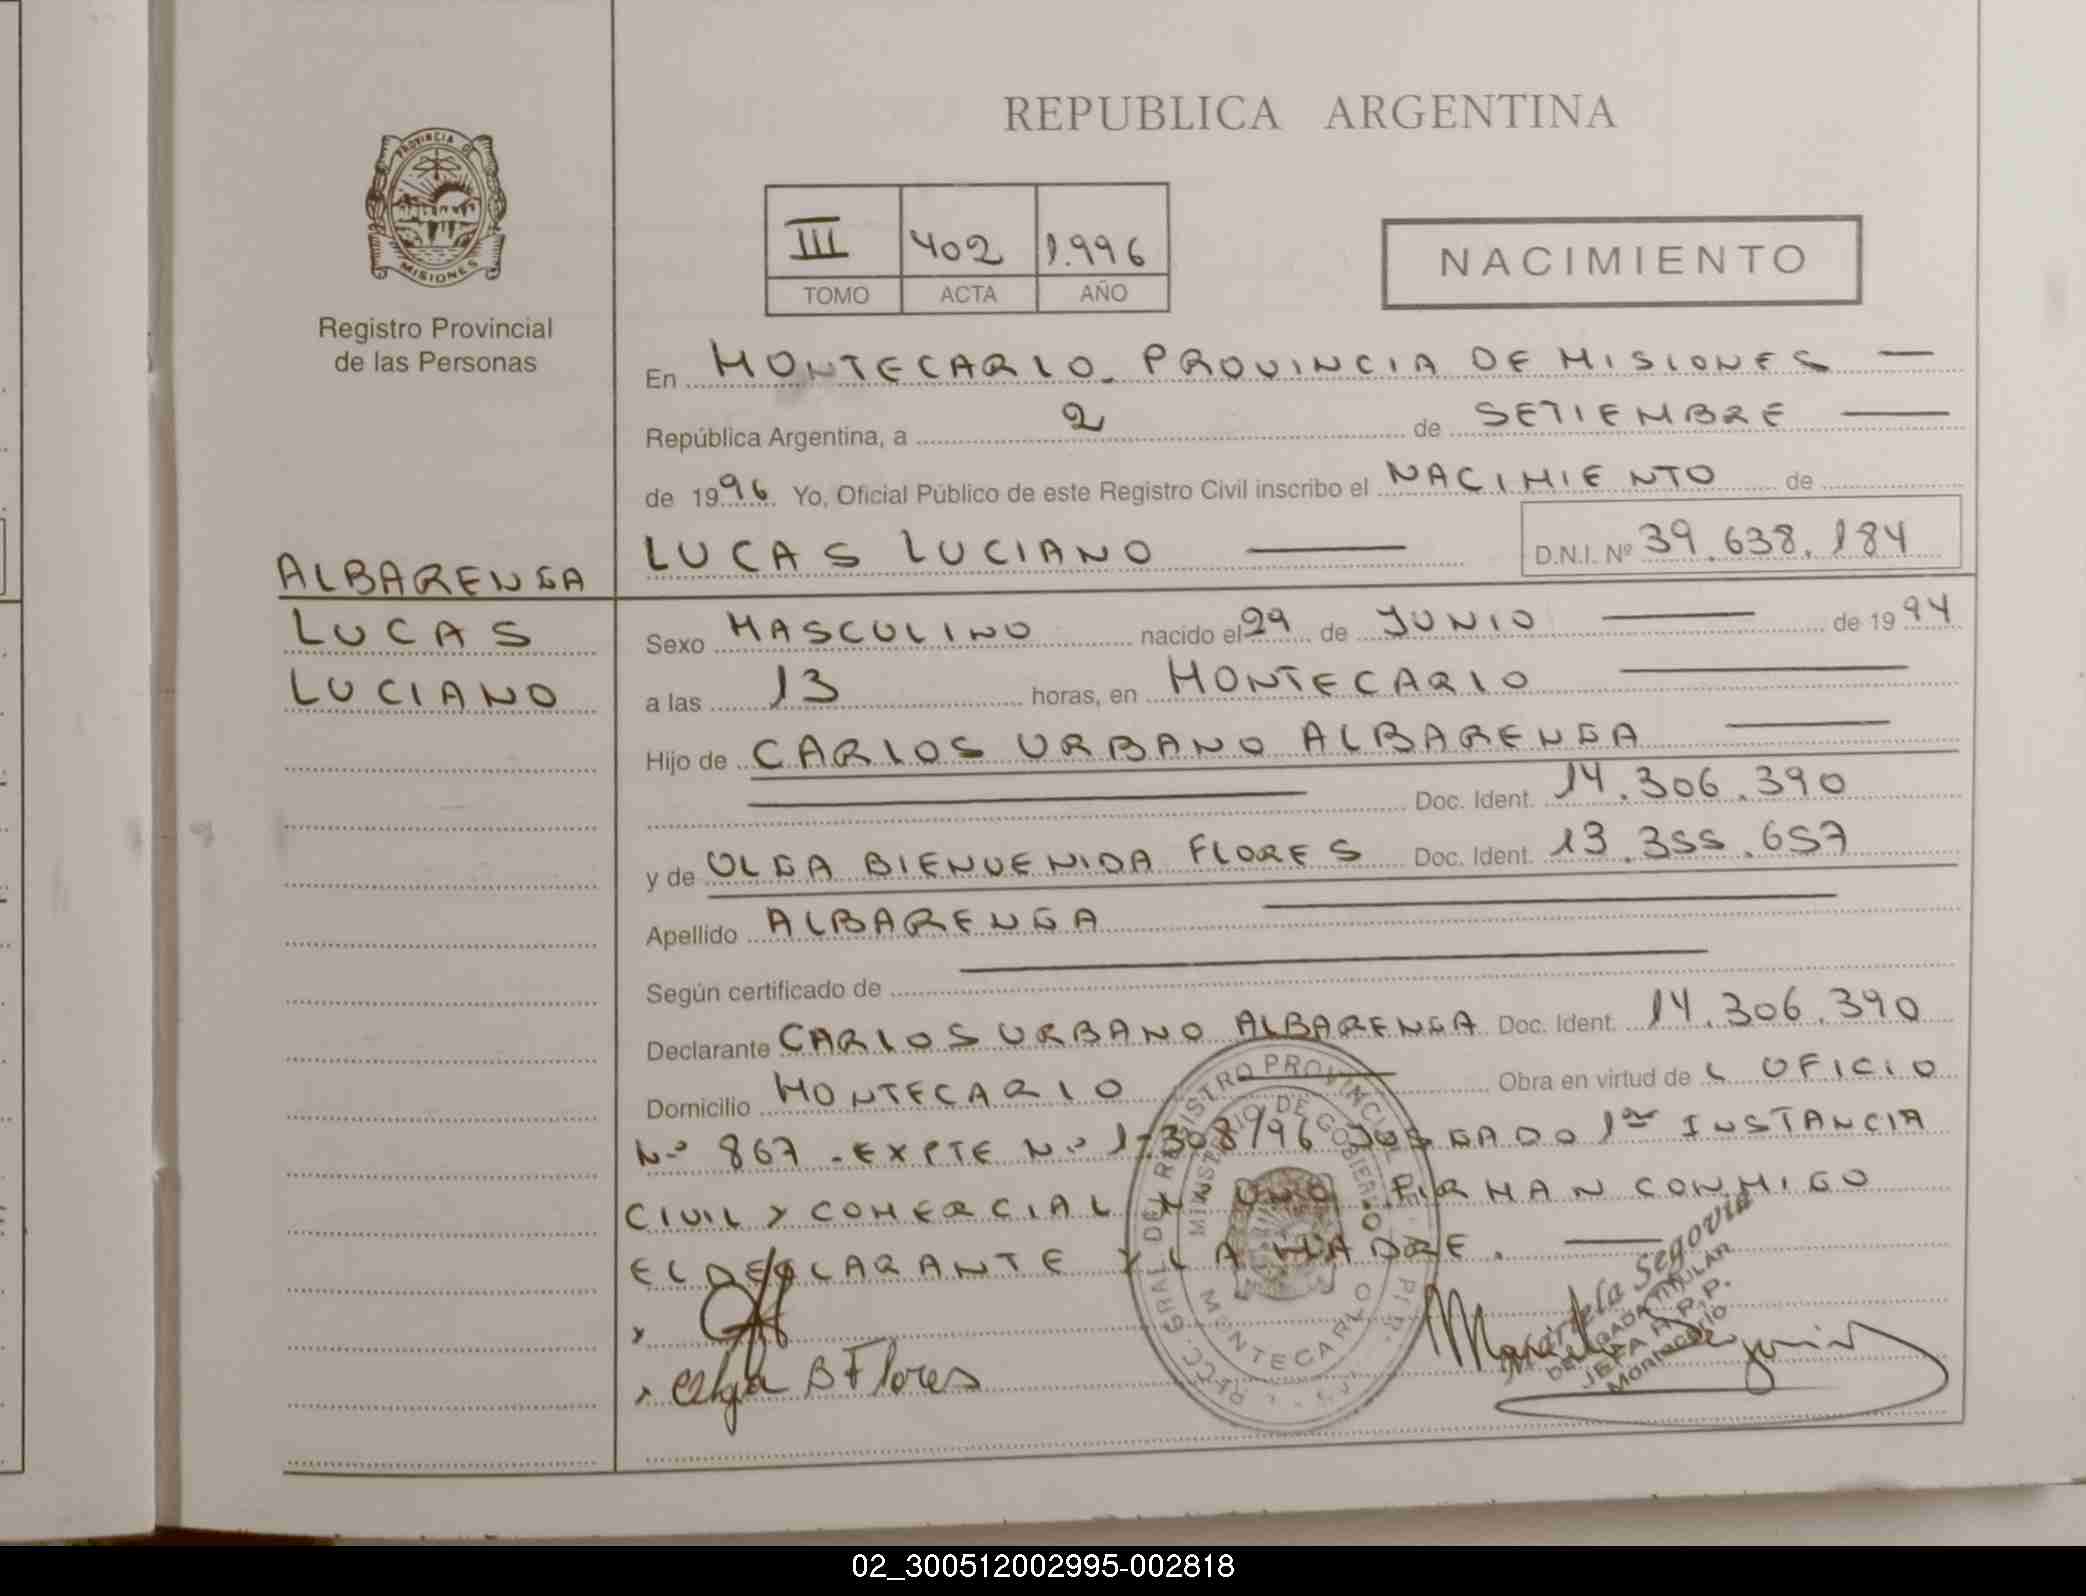 REPUBLICA ARGENTINA
PROVINCIA DE
MISIONES
Registro Provincial
de las Personas
III 402 1.996
TOMO ACTA AÑO
NACIMIENTO
En MONTECARLO. PROVINCIA DE MISIONES —
República Argentina, a 2 de SETIEMBRE —
de 1996 Yo, Oficial Público de este Registro Civil inscribo el NACIMIENTO de
LUCAS LUCIANO — D.N.I. Nº 39.638.184
ALBARENGA
LUCAS
LUCIANO
Sexo MASCULINO nacido el 29 de JUNIO — de 1994
a las 13 horas, en MONTECARLO —
Hijo de CARLOS URBANO ALBARENGA —
— Doc. Ident. 14.306.390
y de OLGA BIENVENIDA FLORES Doc. Ident. 13.355.657
Apellido ALBARENGA —
Según certificado de —
Declarante CARLOS URBANO ALBARENGA Doc. Ident. 14.306.390
Domicilio MONTECARLO — Obra en virtud de L OFICIO
Nº 867 - EXPTE Nº 1.308/96 JUZGADO 1ra INSTANCIA
CIVIL Y COMERCIAL Nº UNO. FIRMAN CONMIGO
EL DECLARANTE Y LA MADRE. —
x
x Olga B Flores
MINISTERIO DE GOBIERNO
MONTECARLO
Marcela Segovia
DELEGADA TITULAR
JEFA R.P.P.
Montecarlo
02_300512002995-002818